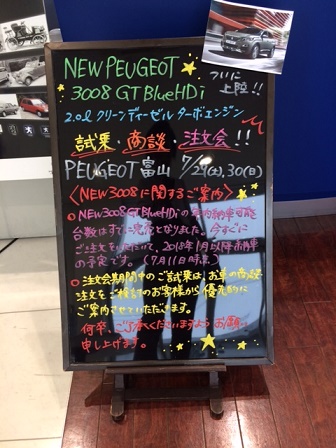 NEW PEUGEOT
3008 GT BlueHDi
ついに
上陸!!
2.0ℓ クリーンディーゼル ターボエンジン
試乗・商談・注文会!!
PEUGEOT富山 7/29(土),30(日)
<NEW3008に関するご案内>
○NEW3008 GT BlueHDiの年内納車可能
台数はすでに完売となりました。今すぐに
ご注文をいただいて、2018年1月以降納車
の予定です。(7月11日時点)
○注文会期間中のご試乗は、お車の商談
注文をご検討のお客様から優先的に
ご案内させていただきます。
何卒、ご了承くださいますようお願い
申し上げます。